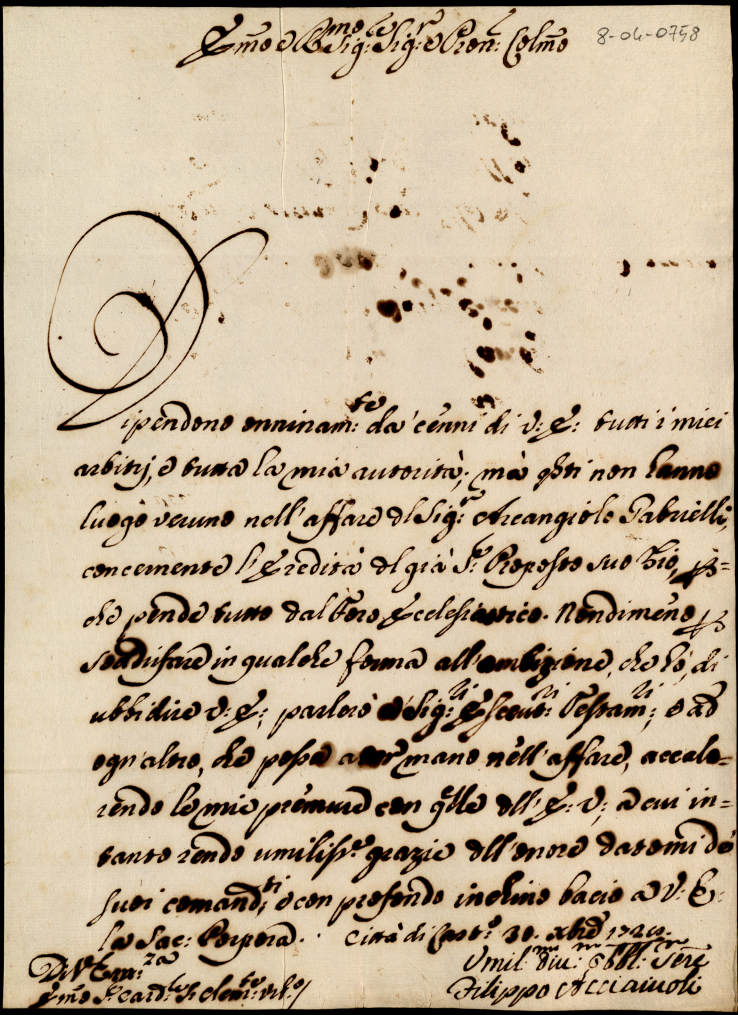 8-04-0758
Emo e Rmo Sig.re Sig.r e Pron. Colmo
Dipendono onninam.te da' cenni di V: E: tutti i miei
arbitrj, e tutta la mia autorità; mà qsti non hanno
luogo veruno nell'affare dl Sig.r Arcangiolo Gabrielli,
concernente l'Eredità dl già S.r Proposto suo Zio, p=
che pende tutto dal Foro Ecclesiastico. Nondimeno p
sodisfare in qualche forma all'ambizione, che hò, di
ubbidire V: E:, parlerò a' Sig.ri Esecut.ri Testam.ri, e ad
ogn'altro, che possa aver mano nell'affare, accalo=
rendo le mie premure con qlle dll'E: V:, a cui in=
tanto rendo umiliss.e grazie dll'onore datomi de'
suoi comand.ti, e con profondo inchino bacio a V: E:
la Sac: Porpora. Città di Cast.o 30. Xbre
Di V. Em.za
Umil.mo div.mo obbl. Serre
Emo S.r Card.le S. Clem.te
Filippo Acciaiuoli